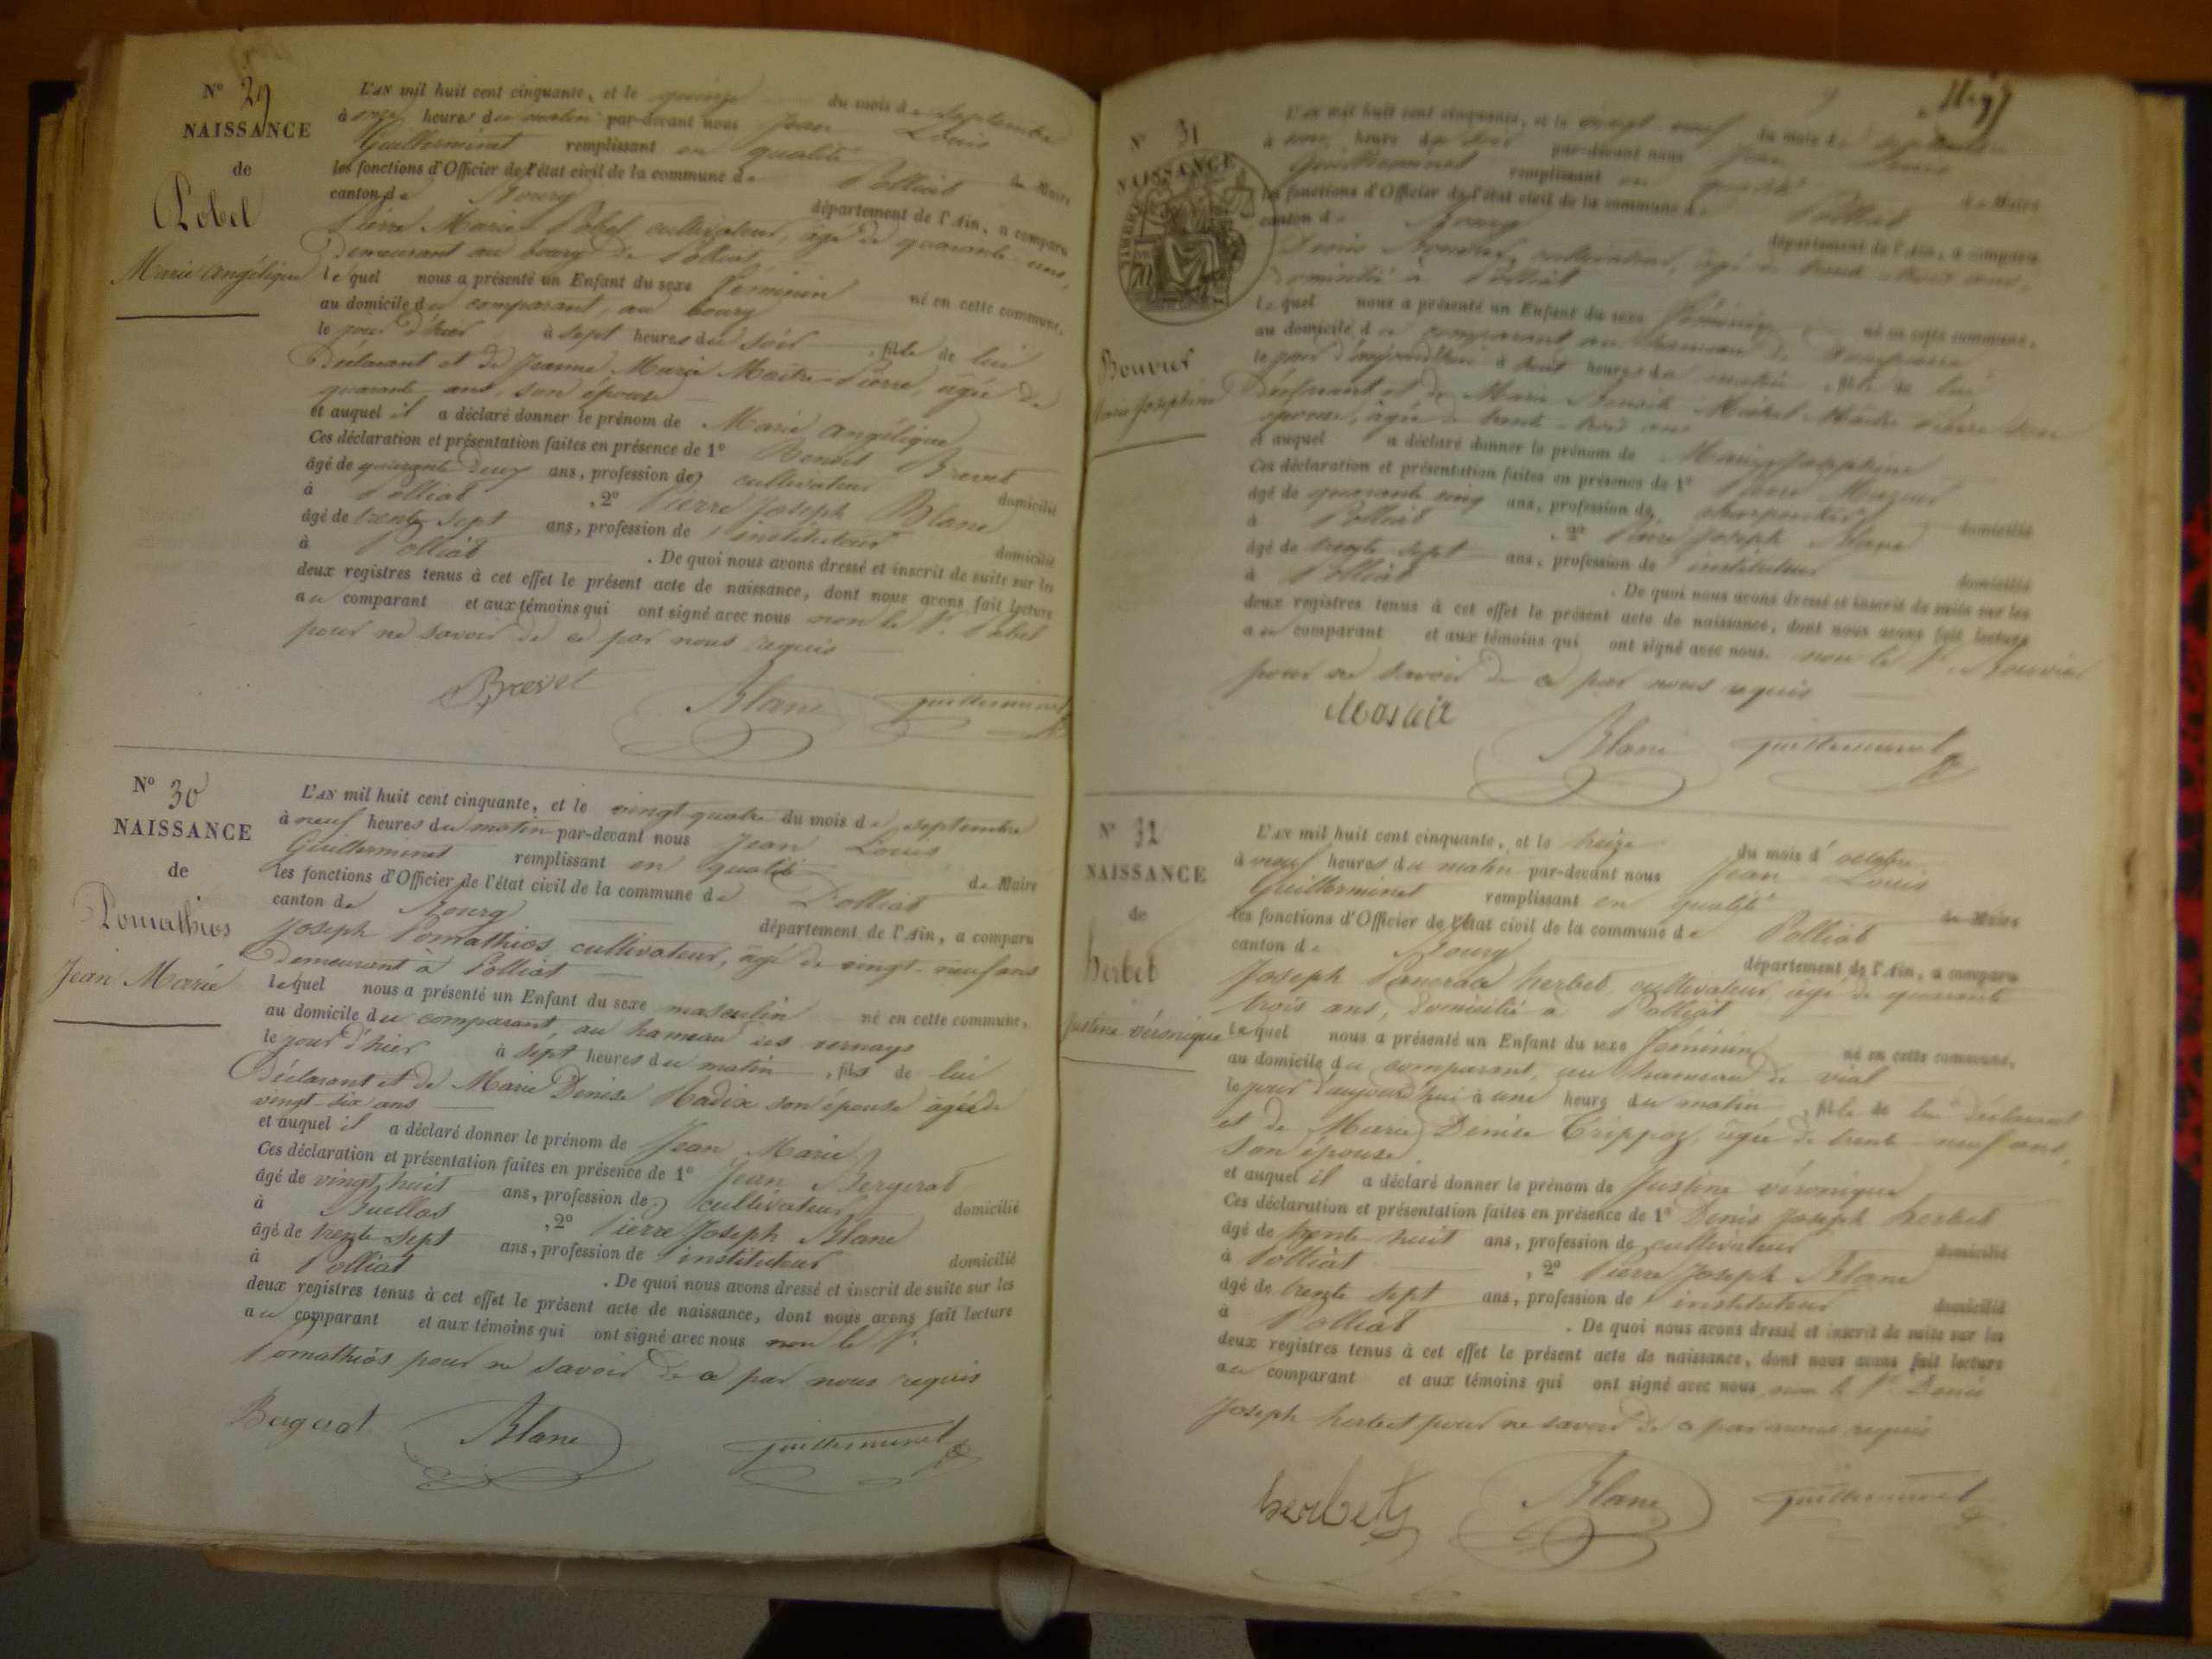 N° 29
NAISSANCE
de
Pobel
Marie Angélique
L'AN mil huit cent cinquante, et le quinze du mois de Septembre
à onze heures du matin par-devant nous Jean Louis
Guillerminet remplissant en qualité de Maire
les fonctions d'Officier de l'état civil de la commune de Polliat
canton de Bourg département de l'Ain, a comparu
Pierre Marie Pobel cultivateur, âgé de quarante ans,
demeurant au bourg de Polliat,
le quel nous a présenté un Enfant du sexe féminin né en cette commune,
au domicile du comparant, au bourg
le jour d'hier à sept heures du soir, fille de lui
déclarant et de Jeanne Marie Maitre-Pierre, âgée de
quarante ans, son épouse
et auquel il a déclaré donner le prénom de Marie Angélique
Ces déclaration et présentation faites en présence de 1° Benoit Brevet
âgé de quarante deux ans, profession de cultivateur domicilié
à Polliat, 2° Pierre Joseph Blanc
âgé de trente sept ans, profession de instituteur domicilié
à Polliat. De quoi nous avons dressé et inscrit de suite sur les
deux registres tenus à cet effet le présent acte de naissance, dont nous avons fait lecture
au comparant et aux témoins qui ont signé avec nous non le P. Pobel
pour ne savoir de ce par nous requis
Brevet Blanc guillerminet
N° 30
NAISSANCE
de
Pomathios
Jean Marie
L'AN mil huit cent cinquante, et le vingt-quatre du mois de septembre
à neuf heures du matin par-devant nous Jean Louis
Guillerminet remplissant en qualité de Maire
les fonctions d'Officier de l'état civil de la commune de Polliat
canton de Bourg département de l'Ain, a comparu
Joseph Pomathios cultivateur, âgé de vingt-neuf ans
demeurant à Polliat
le quel nous a présenté un Enfant du sexe masculin né en cette commune,
au domicile du comparant, au hameau des vernays
le jour d'hier à sept heures du matin, fils de lui
déclarant et de Marie Denise Nadix son épouse âgée de
vingt-six ans
et auquel il a déclaré donner le prénom de Jean Marie
Ces déclaration et présentation faites en présence de 1° Jean Bergerat
âgé de vingt huit ans, profession de cultivateur domicilié
à Buellas, 2° Pierre Joseph Blanc
âgé de trente sept ans, profession de instituteur domicilié
à Polliat. De quoi nous avons dressé et inscrit de suite sur les
deux registres tenus à cet effet le présent acte de naissance, dont nous avons fait lecture
au comparant et aux témoins qui ont signé avec nous non le P.
Pomathios pour ne savoir de ce par nous requis
Bergerat Blanc guillerminet
N° 31
NAISSANCE
Bouvier
Marie Josephine
L'AN mil huit cent cinquante, et le vingt-neuf du mois de septembre
à heure du soir par-devant nous Jean Louis
Guillerminet remplissant en qualité de Maire
les fonctions d'Officier de l'état civil de la commune de Polliat
canton de Bourg département de l'Ain, a comparu
Denis Bouvier, cultivateur, âgé de trente-trois ans,
domicilié à Polliat
le quel nous a présenté un Enfant du sexe féminin né en cette commune,
au domicile du comparant au hameau de
le jour d'aujourd'hui à huit heures du matin, fille de lui
déclarant et de Marie Benoite Michel Maitre Pierre son
épouse, âgée de trente-trois ans
et auquel a déclaré donner le prénom de Marie Josephine
Ces déclaration et présentation faites en présence de 1° Pierre
âgé de quarante cinq ans, profession de charpentier domicilié
à Polliat, 2° Pierre Joseph Blanc
âgé de trente sept ans, profession de instituteur domicilié
à Polliat. De quoi nous avons dressé et inscrit de suite sur les
deux registres tenus à cet effet le présent acte de naissance, dont nous avons fait lecture
au comparant et aux témoins qui ont signé avec nous. non le P. Bouvier
pour ne savoir de ce par nous requis
Blanc guillerminet
N° 32
NAISSANCE
de
herbet
Justine véronique
L'AN mil huit cent cinquante, et le treize du mois d'octobre
à neuf heures du matin par-devant nous Jean Louis
Guillerminet remplissant en qualité de Maire
les fonctions d'Officier de l'état civil de la commune de Polliat
canton de Bourg département de l'Ain, a comparu
Joseph Pancrace herbet cultivateur âgé de quarante
trois ans, domicilié à Polliat
le quel nous a présenté un Enfant du sexe féminin né en cette commune,
au domicile du comparant, au hameau de vial
le jour d'aujourd'hui à une heure du matin, fille de lui déclarant
et de Marie Denise Trippoz, âgée de trente-neuf ans,
son épouse
et auquel il a déclaré donner le prénom de Justine véronique
Ces déclaration et présentation faites en présence de 1° Denis Joseph herbet
âgé de trente-huit ans, profession de cultivateur domicilié
à Polliat, 2° Pierre Joseph Blanc
âgé de trente sept ans, profession de instituteur domicilié
à Polliat. De quoi nous avons dressé et inscrit de suite sur les
deux registres tenus à cet effet le présent acte de naissance, dont nous avons fait lecture
au comparant et aux témoins qui ont signé avec nous non le P. Denis
Joseph herbet pour ne savoir de ce par nous requis
herbet Blanc guillerminet